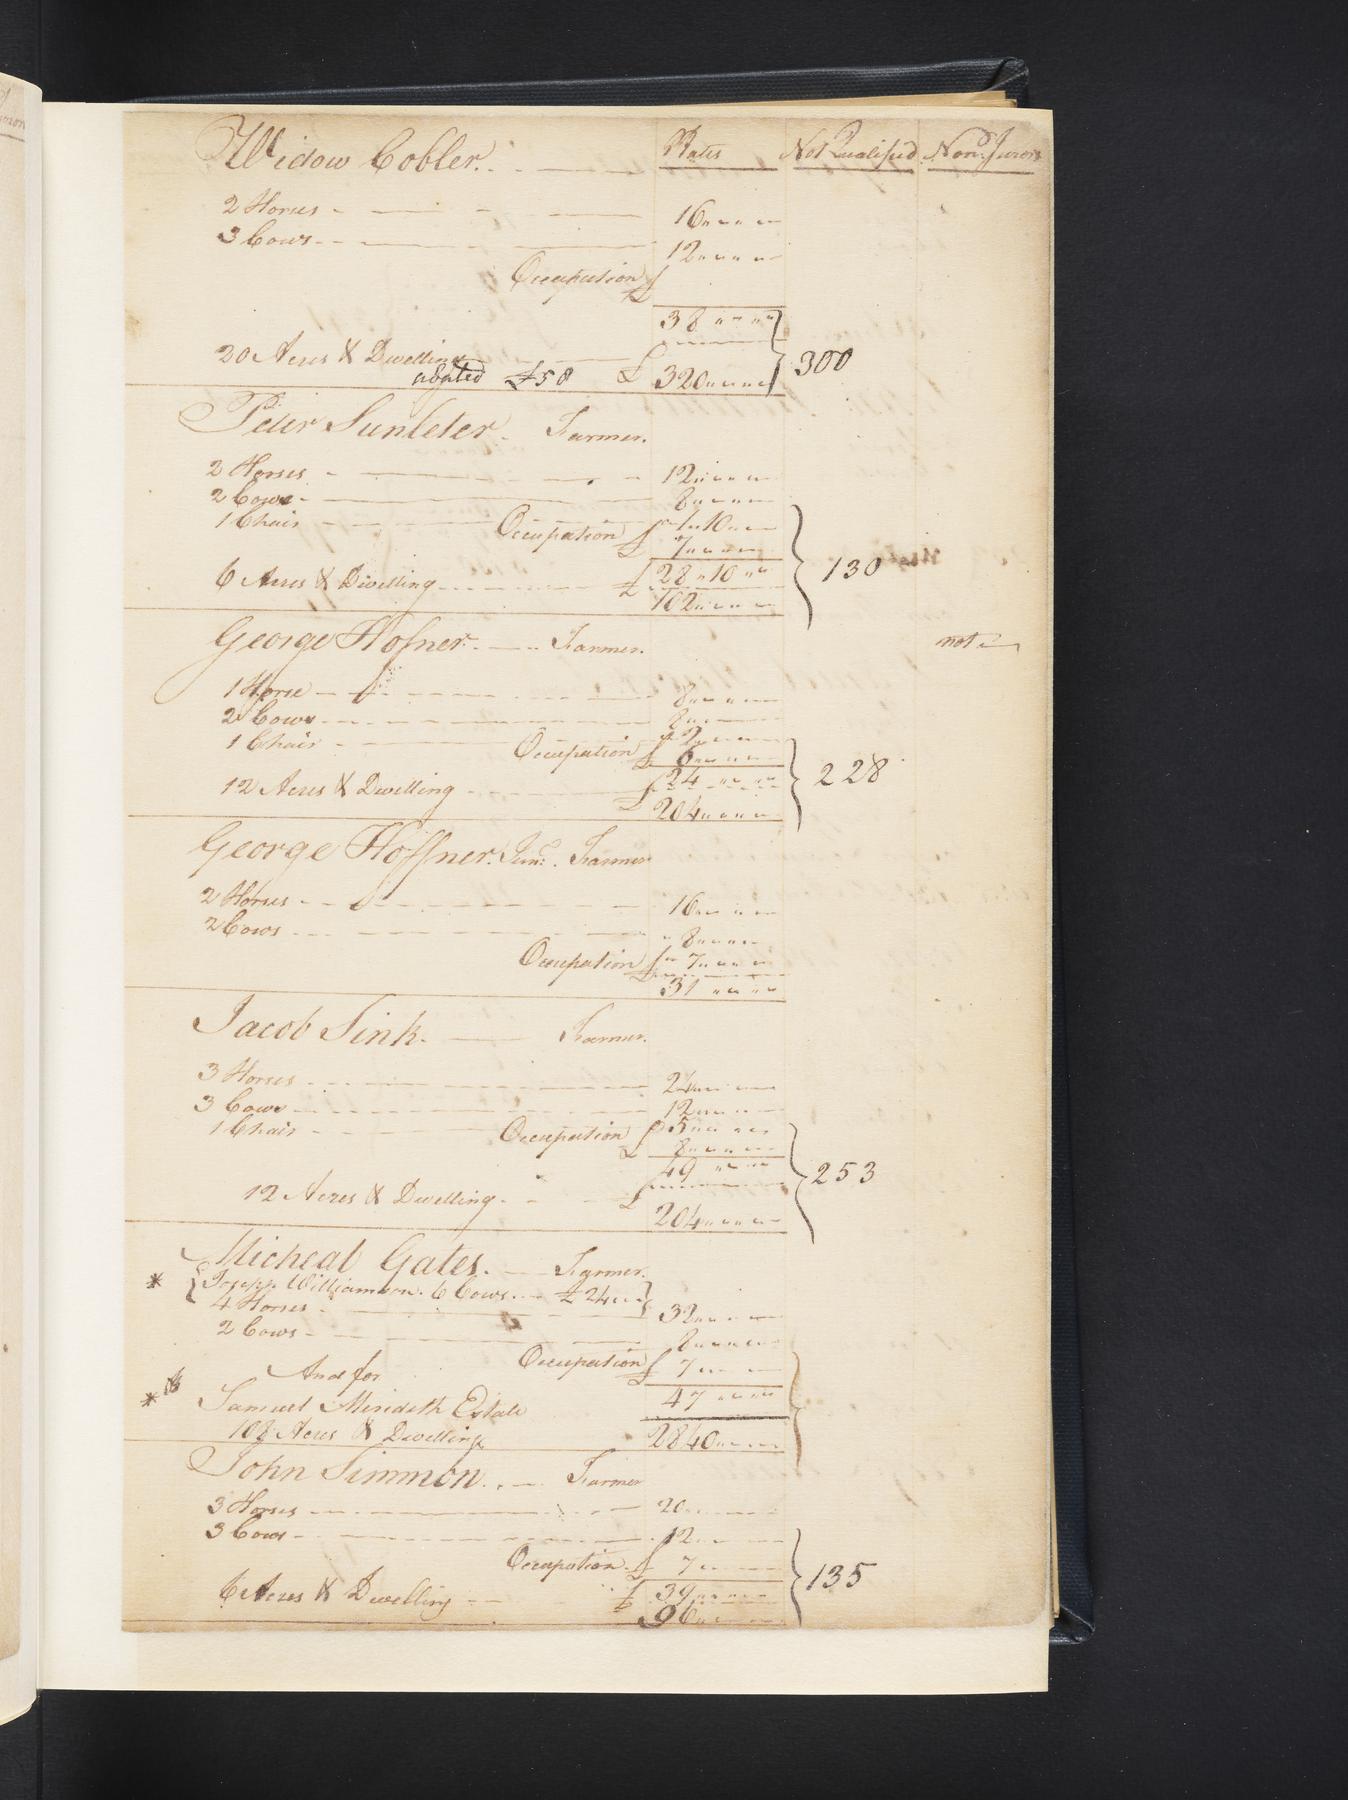 Widow Cobler. Rates Not Qualified Non Jurors
2 Horses - 16
3 Cows - 12
Occupation £
38
20 Acres & Dwelling
abated £58 £ 320 300
Peter Sunleter. Farmer.
2 Horses - 12
2 Cows - 8
1 Chair - 1 10
Occupation £ 7
£ 28 10 130
6 Acres & Dwelling 102
George Hofner. Farmer. not
1 Horse - 8
2 Cows - 8
1 Chair - 2
Occupation £ 6
24 228
12 Acres & Dwelling £ 204
George Hoffner. Junr. Farmer
2 Horses - 16
2 Cows 8
Occupation £ 7
31
Jacob Sink. Farmer.
3 Horses 24
3 Cows 12
1 Chair - 5
Occupation £ 8
49 253
12 Acres & Dwelling. £ 204
Micheal Gates. Farmer.
* { Joseph Williamson. 6 Cows. £ 24 }
4 Horses 32
2 Cows - 8
Occupation £ 7
And for
47
* Samuel Merideth Estate
108 Acres & Dwelling 2840
John Simmon. Farmer
3 Horses 20
3 Cows - 12
Occupation £ 7
£ 39 135
6 Acres & Dwelling 96